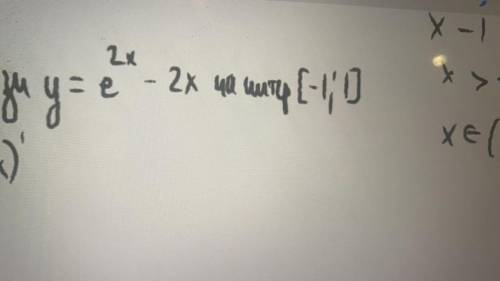 y = e^{2x} - 2x на интер [-1; 1]
x - 1
x >
x ∈ (
)'